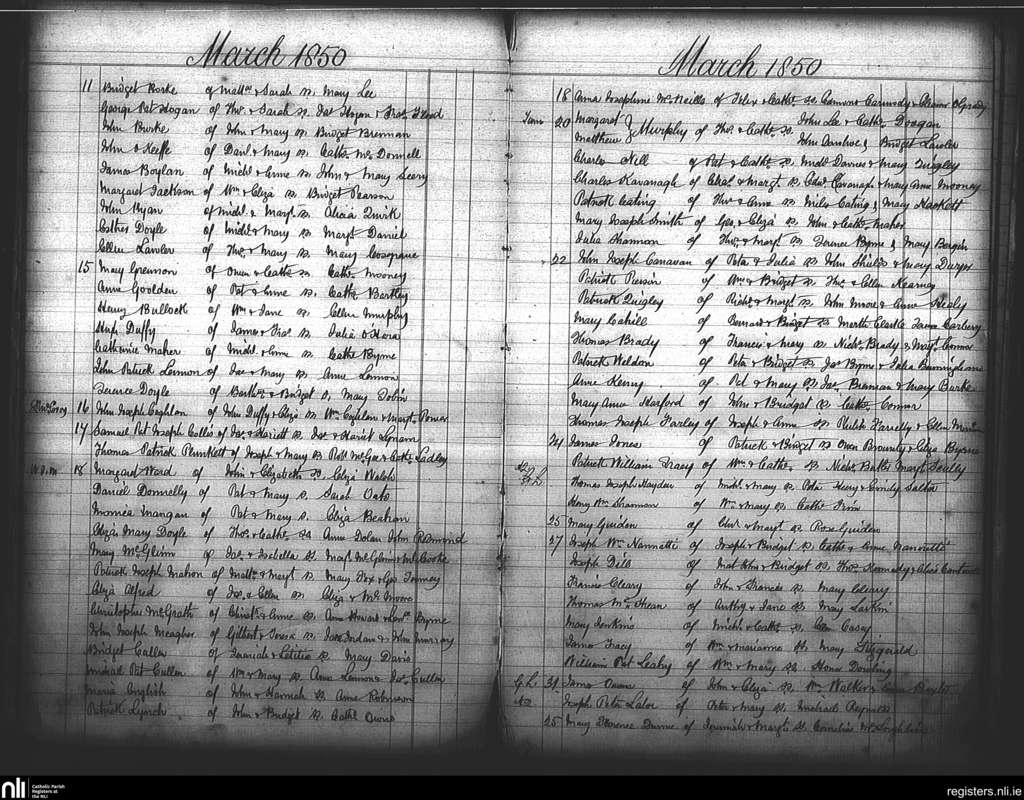 March 1850
11 Bridget Borke of Matt. & Sarah S. Mary Lee
George Pat Hogan of Tho. & Sarah S. Jas Hogan & Flood
John Burke of John & Mary S. Bridget Brennan
John O Keeffe of Danl & Mary S. Cathe McDonnell
James Boylan of Michl & Anne S. John & Mary Seery
Margaret Jackson of Wm & Eliza S. Bridget Pearson
John Ryan of Michl & Margt S. Alicia Quirk
Esther Doyle of Michl & Mary S. Margt Daniel
Ellen Lawler of Tho. & Mary S. Mary Cosgrave
15 Mary Grennon of Owen & Cathe S. Cathe Mooney
Anne Goolden of Pat & Anne S. Cathe Bartley
Henry Bullock of Wm & Jane S. Ellen Murphy
Hugh Duffy of James & S. Julia O Hara
Catherine Maher of Michl & Anne S. Cathe Byrne
John Patrick Lennon of Jas & Mary S. Anne Lennon
Terence Doyle of Barthw & Bridget S. Mary Tobin
16 John Joseph Coghlan of John Duffy & Eliza S. Wm Coghlan & Margt Power
17 Samuel Pat Joseph of Jas & Hariett S. Jas & Hariet Lynam
Thomas Patrick Plunkett of Joseph & Mary S. McGee & Cathe Ladley
18 Margaret Ward of John & Elizabeth S. Eliza Walsh
Daniel Donnelly of Pat & Mary S. Sarah Oats
Monica Mangan of Pat & Mary S. Eliza Beahan
Eliza Mary Doyle of Tho. & Cathe S. Anne Dolan John Redmond
Mary McGlinn of Jas & Isabella S. Margt McGlinn & Cooke
Patrick Joseph Mahon of Matt. & Margt S. Mary Fox & Geo
Eliza Alfred of Jas & Ellen S. Eliza & Moore
Christopher McGrath of Christ. & Anne S. Anne Howard & Byrne
John Joseph Meagher of Gilbert & Teresa S. Jane Jordan & John Murray
Bridget Cullen of Jeremiah & Letitia S. Mary Davis
Michael Pat Cullen of Wm & Mary S. Anne Lennon & Jas Cullen
Maria English of John & Hannah S. Anne Robinson
Patrick Lynch of John & Bridget S. Cathe Owens
March 1850
18 Anna Josephine McNeills of Felix & Cathe S. Eamund Carmody & Eleanor O Grady
20 Margaret John Lee & Cathe Doogan
Matthew } Murphy of Tho. & Cathe S. John & Bridget Lawler
Charles Nill of Pat & Cathe S. Michl Davies & Mary Quigley
Charles Kavanagh of Chas & Margt S. Edwd Cavanagh & Mary Anne Mooney
Patrick Keating of Tho. & Anne S. Miles Eating & Mary Hackett
Mary Joseph Smith of Geo & Eliza S. John & Cathe Maher
Julia Shannon of Tho. & Margt S. Terence Byrne & Mary Bergin
22 John Joseph Canavan of Peter & Julia S. John Shields & Mary
Patrick Pierson of Wm & Bridget S. Tho. & Ellen Kearney
Patrick Quigley of Richd & Margt S. John Moore & Anne Healy
Mary Cahill of Bernard & Bridget S. Martin Clarke Carbery
Thomas Brady of Francis & Mary S. Nichs Brady & Margt Connor
Patrick Weldon of Peter & Bridget S. Jas Byrne & Julia Barningham
Anne Kenny of Pat & Mary S. Jas Brennan & Mary Burke
Mary Anne Harford of John & Bridget S. Cathe Connor
Thomas Joseph Farley of Joseph & Anne S. Farrelly & Ellen
24 James Jones of Patrick & Bridget S. Owen & Eliza Byrne
Patrick William Tracy of Wm & Cathe S. Nichs Butler Margt Scully
Thomas Joseph Hayden of Michl & Mary S. Peter Henry & Emily Salter
Henry Wm Shannon of Wm & Mary S. Cathe Finn
25 Mary Guiden of Edwd & Margt S. Rose Guiden
27 Joseph Wm Nannetti of Joseph & Bridget S. Cathe & Anne Nannetti
Joseph Dill of Mat John & Bridget S. Tho. Kennedy & Alice
Francis Cleary of John & Frances S. Mary Cleary
Thomas of Anthy & Jane S. Mary Larkin
Mary Jenkins of Michl & Cathe S. Casey
James Tracy of Wm & Marianne S. Mary Fitzgerald
William Pat Leahy of Wm & Mary S. Honor Dowling
31 James Owens of John & Eliza S. Wm Walker &
Joseph Peter Lalor of Peter & Mary S. Michael Reynolds
25 Mary Florence Dunne of Jeremiah & Margt S. Cornelius McLoughlin
nli
Catholic Parish
Registers at
the NLI
registers.nli.ie